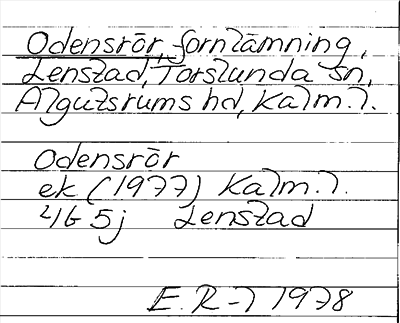 Odensrör, fornlämning,
Lenstad, Torslunda sn,
Algutsrums hd, Kalm.l.
Odensrör
ek (1977) Kalm.l.
4G 5j Lenstad
E.R-l 1978